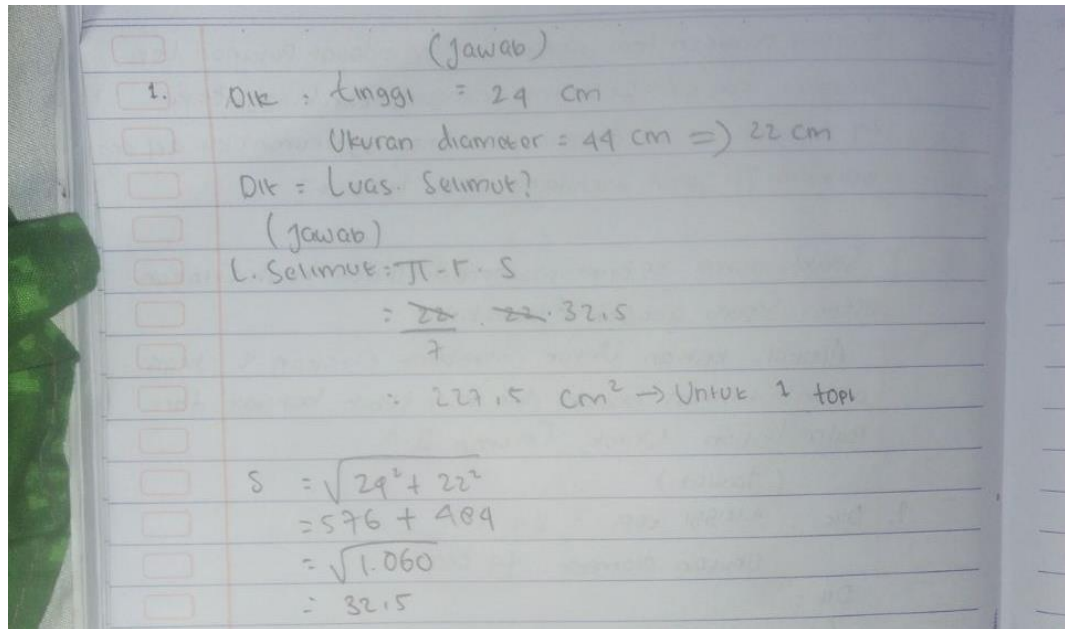 (Jawab)
1. Dik : tinggi = 24 cm
Ukuran diameter = 44 cm => 22 cm
Dit = Luas Selimut?
(Jawab)
L. Selimut = π . r . s
= 22/7 . 22 . 32,5
= 227,5 cm² → Untuk 1 topi
S = √24² + 22²
= 576 + 484
= √1.060
= 32,5